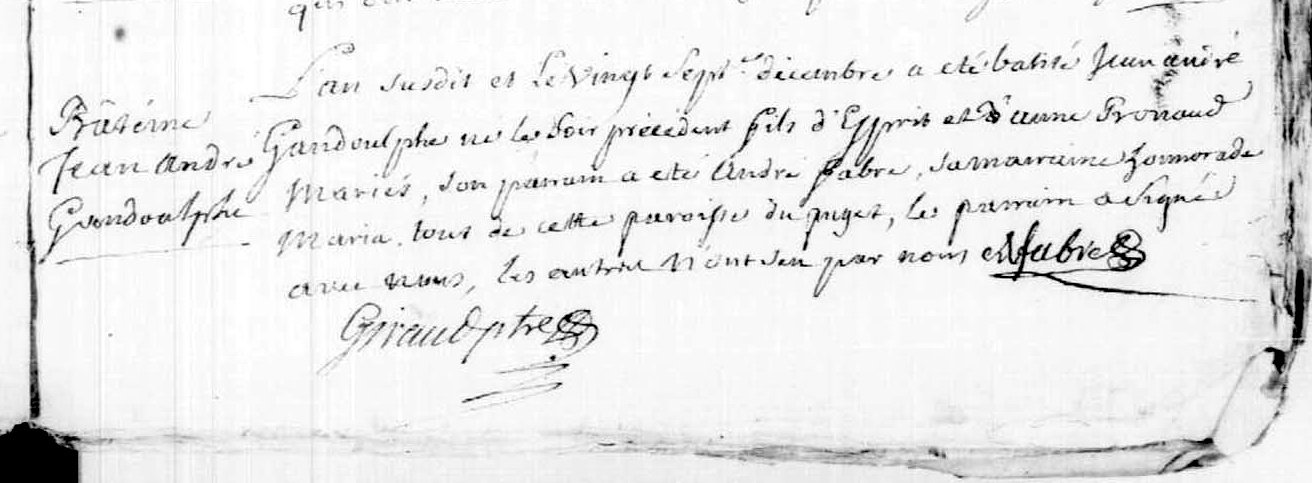 qui ont
L'an susdit et Le Vingt Sept.e décembre a eté batisé Jean andré
Batême
Jean André
Gandoulphe
Gandoulphe né le soir précédent fils d'Esprit et d'anne
Mariés, son parrain a eté André fabre, sa marraine
Maria, tous de cette paroisse du puget, le parrain a signé
avec nous, les autres n'ont seu par nous Afabre
Giraud ptre